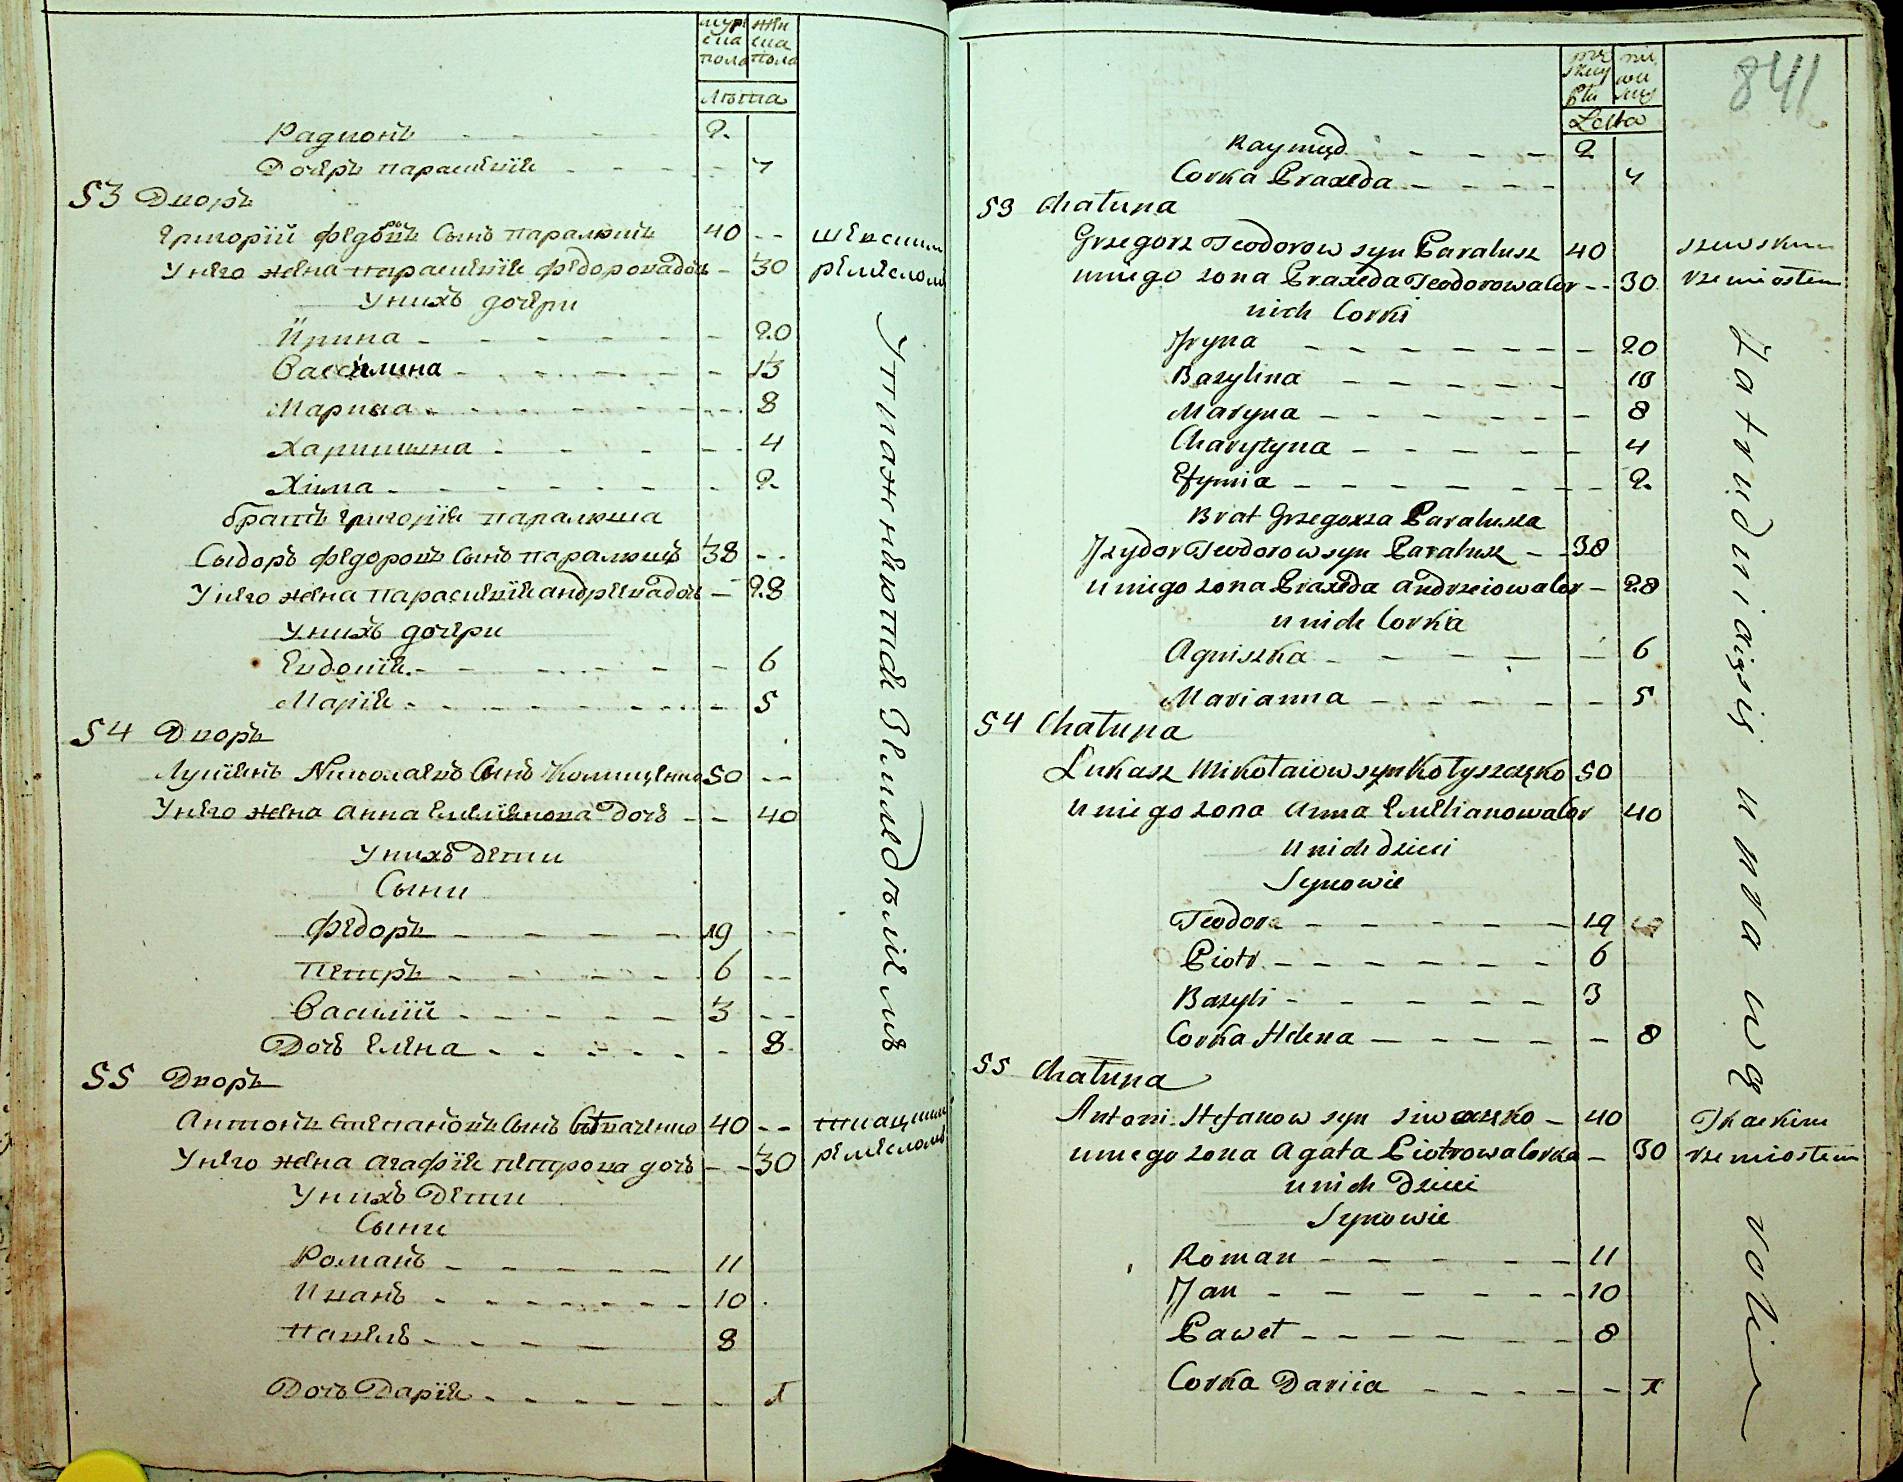 муж
ска
пола
жен
ска
пола
Лѣта
Радионъ - - - - - 2
Дочерь параскевія - - - - 4
53 Дворъ
Григорій Федоровъ Сынъ паралюшъ 40 - -
Унего жена параскевія федорова дочь - 30
шевскимъ
ремесломъ
Унихъ дочери
Ирина - - - - - - 20
Василина - - - - - - 13
Марина - - - - - - 8
Харитина - - - - - 4
Хима - - - - - - 2
братъ григорія паралюша
Сыдоръ федоровъ Сынъ паралюшъ 38 - -
Унего жена параскевія андреева дочь - 28
Унихъ дочери
Евдокія - - - - - 6
Марія - - - - - - 5
54 Дворъ
Лукіянъ Николаевъ Сынъ Колищенко 50 - -
Унего жена Анна Емеліянова Дочь - - 40
Унихъ Дети
Сыни
федоръ - - - - 19 - -
Петръ - - - - 6 - -
Василій - - - - - 3 - -
Дочь Елена - - - - - - 8
55 Дворъ
Антонъ Степановъ Сынъ Сѣваченко 40 - -
Унего жена агафія петрова дочь - - 30
ткацкимъ
ремесломъ
Унихъ Дети
Сыни
Романъ - - - - - 11
Иванъ - - - - - - - 10
Павелъ - - - - 8
Дочь Дарія - - - - - - 1
Упражняются Земледѣліемъ
841
Lata
Raymund - - - 2
Corka Praxeda - - - - 4
53 Chałupa
Grzegorz Teodorow syn Paralusz 40
u niego zona Praxeda Teodorowa cor - - 30
szewskim
rzemiosłem
nich Corki
Iryna - - - - - - - 20
Bazylina - - - - - - 13
Maryna - - - - - - 8
Charytyna - - - - - 4
Efymia - - - - - - - 2
Brat Grzegorza Paralusza
Izydor Teodorow syn Paralusz - - 38
u niego zona Praxeda Andrzeiowa cor - 28
u nich Corka
Agniszka - - - - - 6
Marianna - - - - - - 5
54 Chałupa
Łukasz Mikołaiow syn Kołyszczęko 50
u niego zona Anna Emelianowa cor 40
u nich dzieci
Synowie
Teodor - - - - - - 19
Piotr - - - - - - 6
Bazyli - - - - - - 3
Corka Helena - - - - - 8
55 Chałupa
Antoni Stefanow syn Siwaczęko - 40
u niego zona Agata Piotrowa corka - 30
Tkackim
rzemiosłem
u nich Dzieci
Synowie
Roman - - - - - - 11
Jan - - - - - - 10
Paweł - - - - - - 8
Corka Dariia - - - - - - 1
Zatrudniaią się uprawą roli